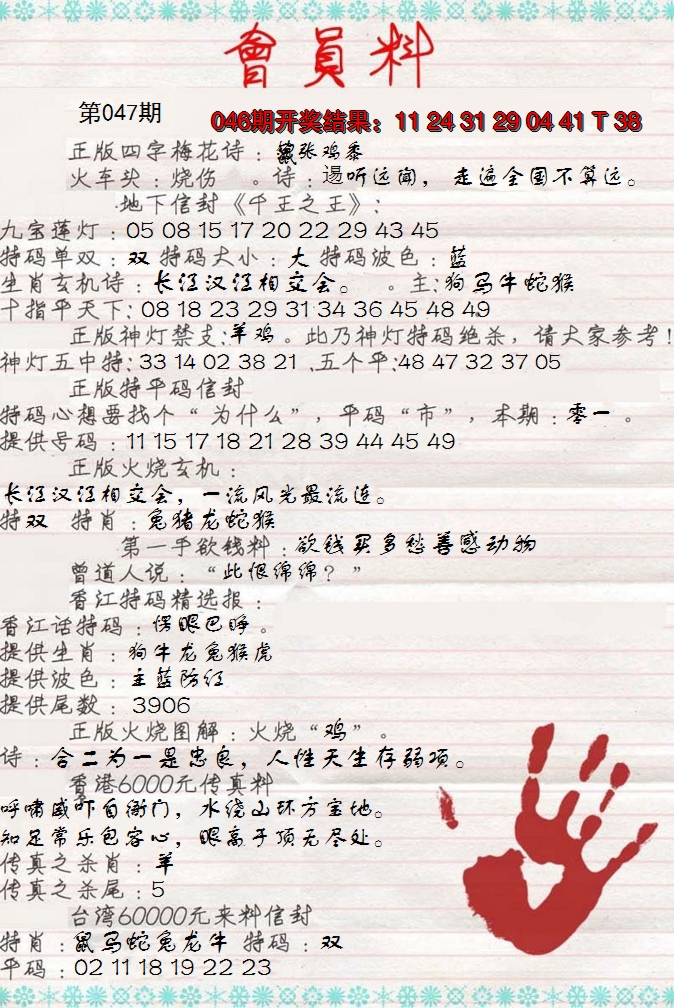 會員料
第047期
046期开奖结果：11 24 31 29 04 41 T 38
正版四字梅花诗：鼠张鸡黍
火车头：烧伤 。诗：逿听远闻，走遍全国不算远。
地下信封《千王之王》：
九宝莲灯：05 08 15 17 20 22 29 43 45
特码单双：双 特码大小：大 特码波色：蓝
生肖玄机诗：长江汉江相交会。 。主：狗马牛蛇猴
十指平天下：08 18 23 29 31 34 36 45 48 49
正版神灯禁支：羊鸡。此乃神灯特码绝杀，请大家参考！
神灯五中特：33 14 02 38 21 .五个平：48 47 32 37 05
正版特平码信封
特码心想要找个“为什么”，平码“市”，本期：零一 。
提供号码：11 15 17 18 21 28 39 44 45 49
正版火烧玄机：
长江汉江相交会，一流风光最流连。
特双 特肖：兔猪龙蛇猴
第一手欲钱料：欲钱买多愁善感动物
曾道人说：“此恨绵绵？”
香江特码精选报：
香江话特码：愣眼巴睁。
提供生肖：狗牛龙兔猴虎
提供波色：主蓝防红
提供尾数：3906
正版火烧图解：火烧“鸡”。
诗：合二为一是忠良，人性天生存弱项。
香港6000元传真料
呼啸威吓自衙门，水绕山环方宝地。
知足常乐包容心，眼高于顶无尽处。
传真之杀肖：羊
传真之杀尾：5
台湾60000元来料信封
特肖：鼠马蛇兔龙牛 特码：双
平码：02 11 18 19 22 23